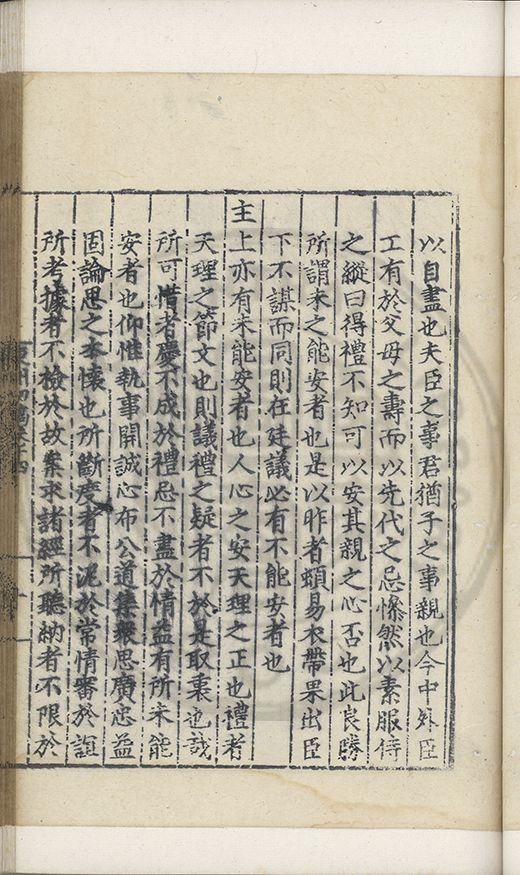 以自盡也夫臣之事君猶子之事親也今中外臣
工有於父母之壽而以先代之忌愀然以素服侍
之縱曰得禮不知可以安其親之心否也此良勝
所謂未之能安者也是以昨者頓易衣帶果出臣
下不謀而同則在廷議必有不能安者也
主上亦有未能安者也人心之安天理之正也禮者
天理之節文也則議禮之疑者不於是取衷也哉
所可惜者慶不成於禮忌不盡於情益有所未能
安者也仰惟執事開誠心布公道集衆思廣忠益
固論思之本懷也所斷度者不泥於常情審於誼
所考據者不檢於故案求諸經所聽納者不限於